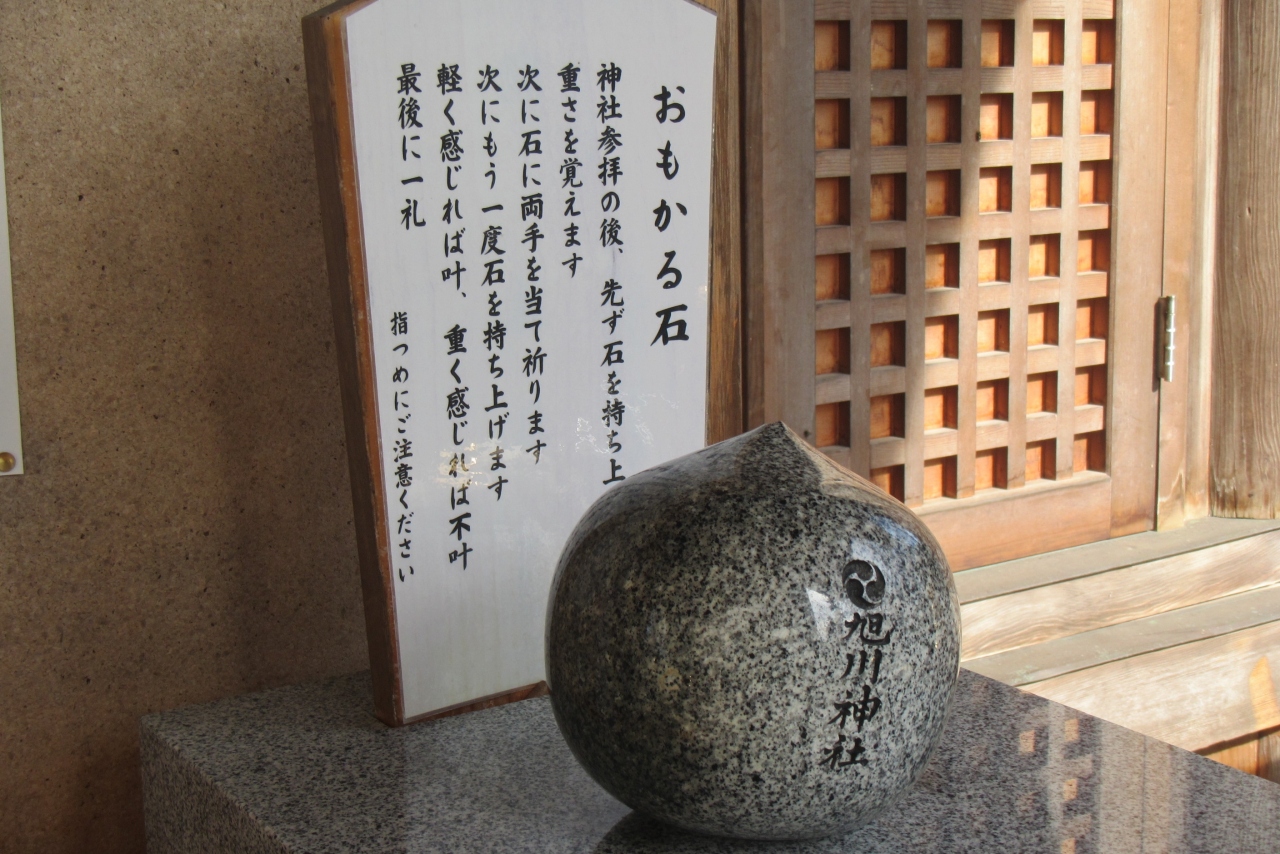 おもかる石
神社参拝の後、先ず石を持ち上
重さを覚えます
次に石に両手を当て祈ります
次にもう一度石を持ち上げます
軽く感じれば叶、重く感じれば不叶
最後に一礼
指つめにご注意ください
旭川神社